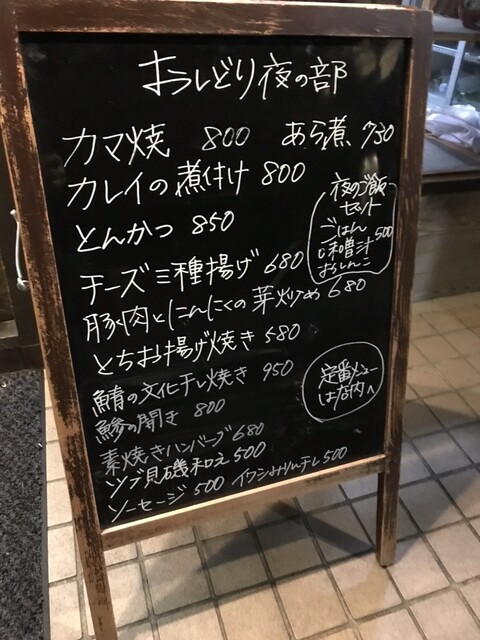 おしどり夜の部
カマ焼 800 あら煮 730
カレイの煮付け 800
とんかつ 850
夜のご飯
セット
ごはん
味噌汁 500
おしんこ
チーズ三種揚げ 680
豚肉とにんにくの芽炒め 680
とちお揚げ焼き 580
鯖の文化干し焼き 950
鯵の開き 800
定番メニュー
は店内へ
素焼きハンバーグ 680
ツブ貝磯和え 500
ソーセージ 500 イワシみりん干し 500